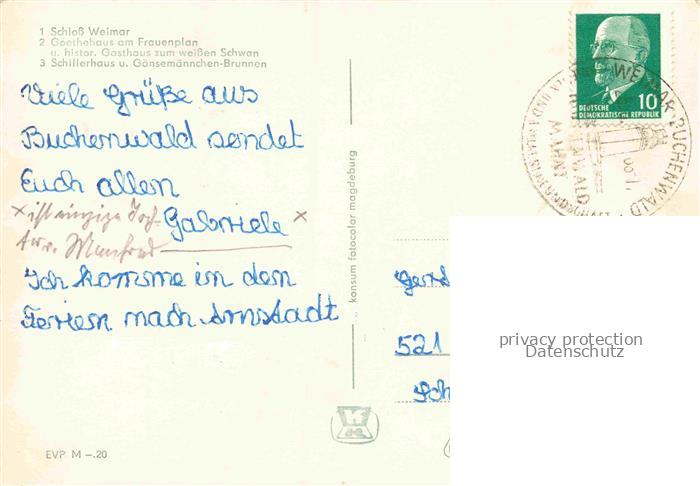 1 Schloß Weimar
2 Goethehaus am Frauenplan
u. histor. Gasthaus zum weißen Schwan
3 Schillerhaus u. Gänsemännchen-Brunnen
Viele Grüße aus
Buchenwald sendet
Euch allen
× ist einzige Gabriele ×
Manfred
Ich komme in den
Ferien nach Arnstadt
EVP M –.20
konsum fotocolor magdeburg
DEUTSCHE
DEMOKRATISCHE REPUBLIK 10
WEIMAR-BUCHENWALD
BUCHENWALD
MAHNT
Gerd
521
Sch
privacy protection
Datenschutz